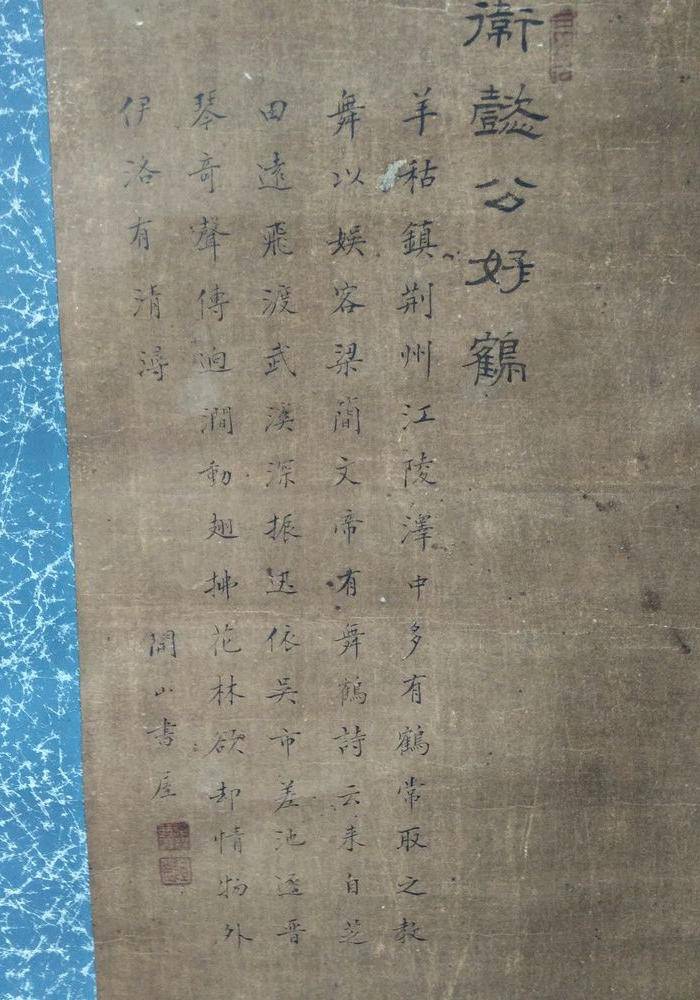 衛懿公好鶴
羊祜鎮荆州江陵澤中多有鶴常取之教
舞以娱客梁簡文帝有舞鶴詩云来自芝
田遠飛渡武溪深振迅依吴市差池逐晋
琴奇聲傳迥澗動翅拂花林欲却情物外
伊洛有清潯
開山書屋